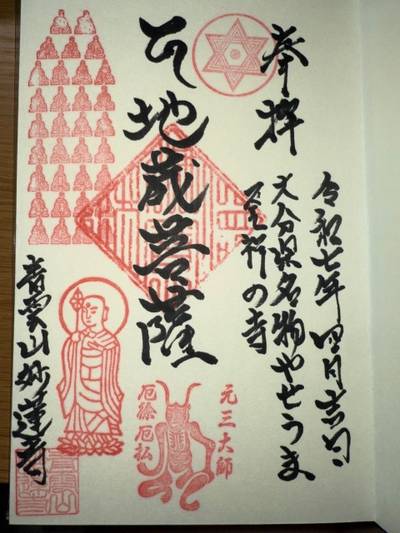 奉拝
令和七年四月吉日
大分県名物やせうま
発祥の寺
地蔵菩薩
青雲山妙蓮寺
元三大師
厄除厄払